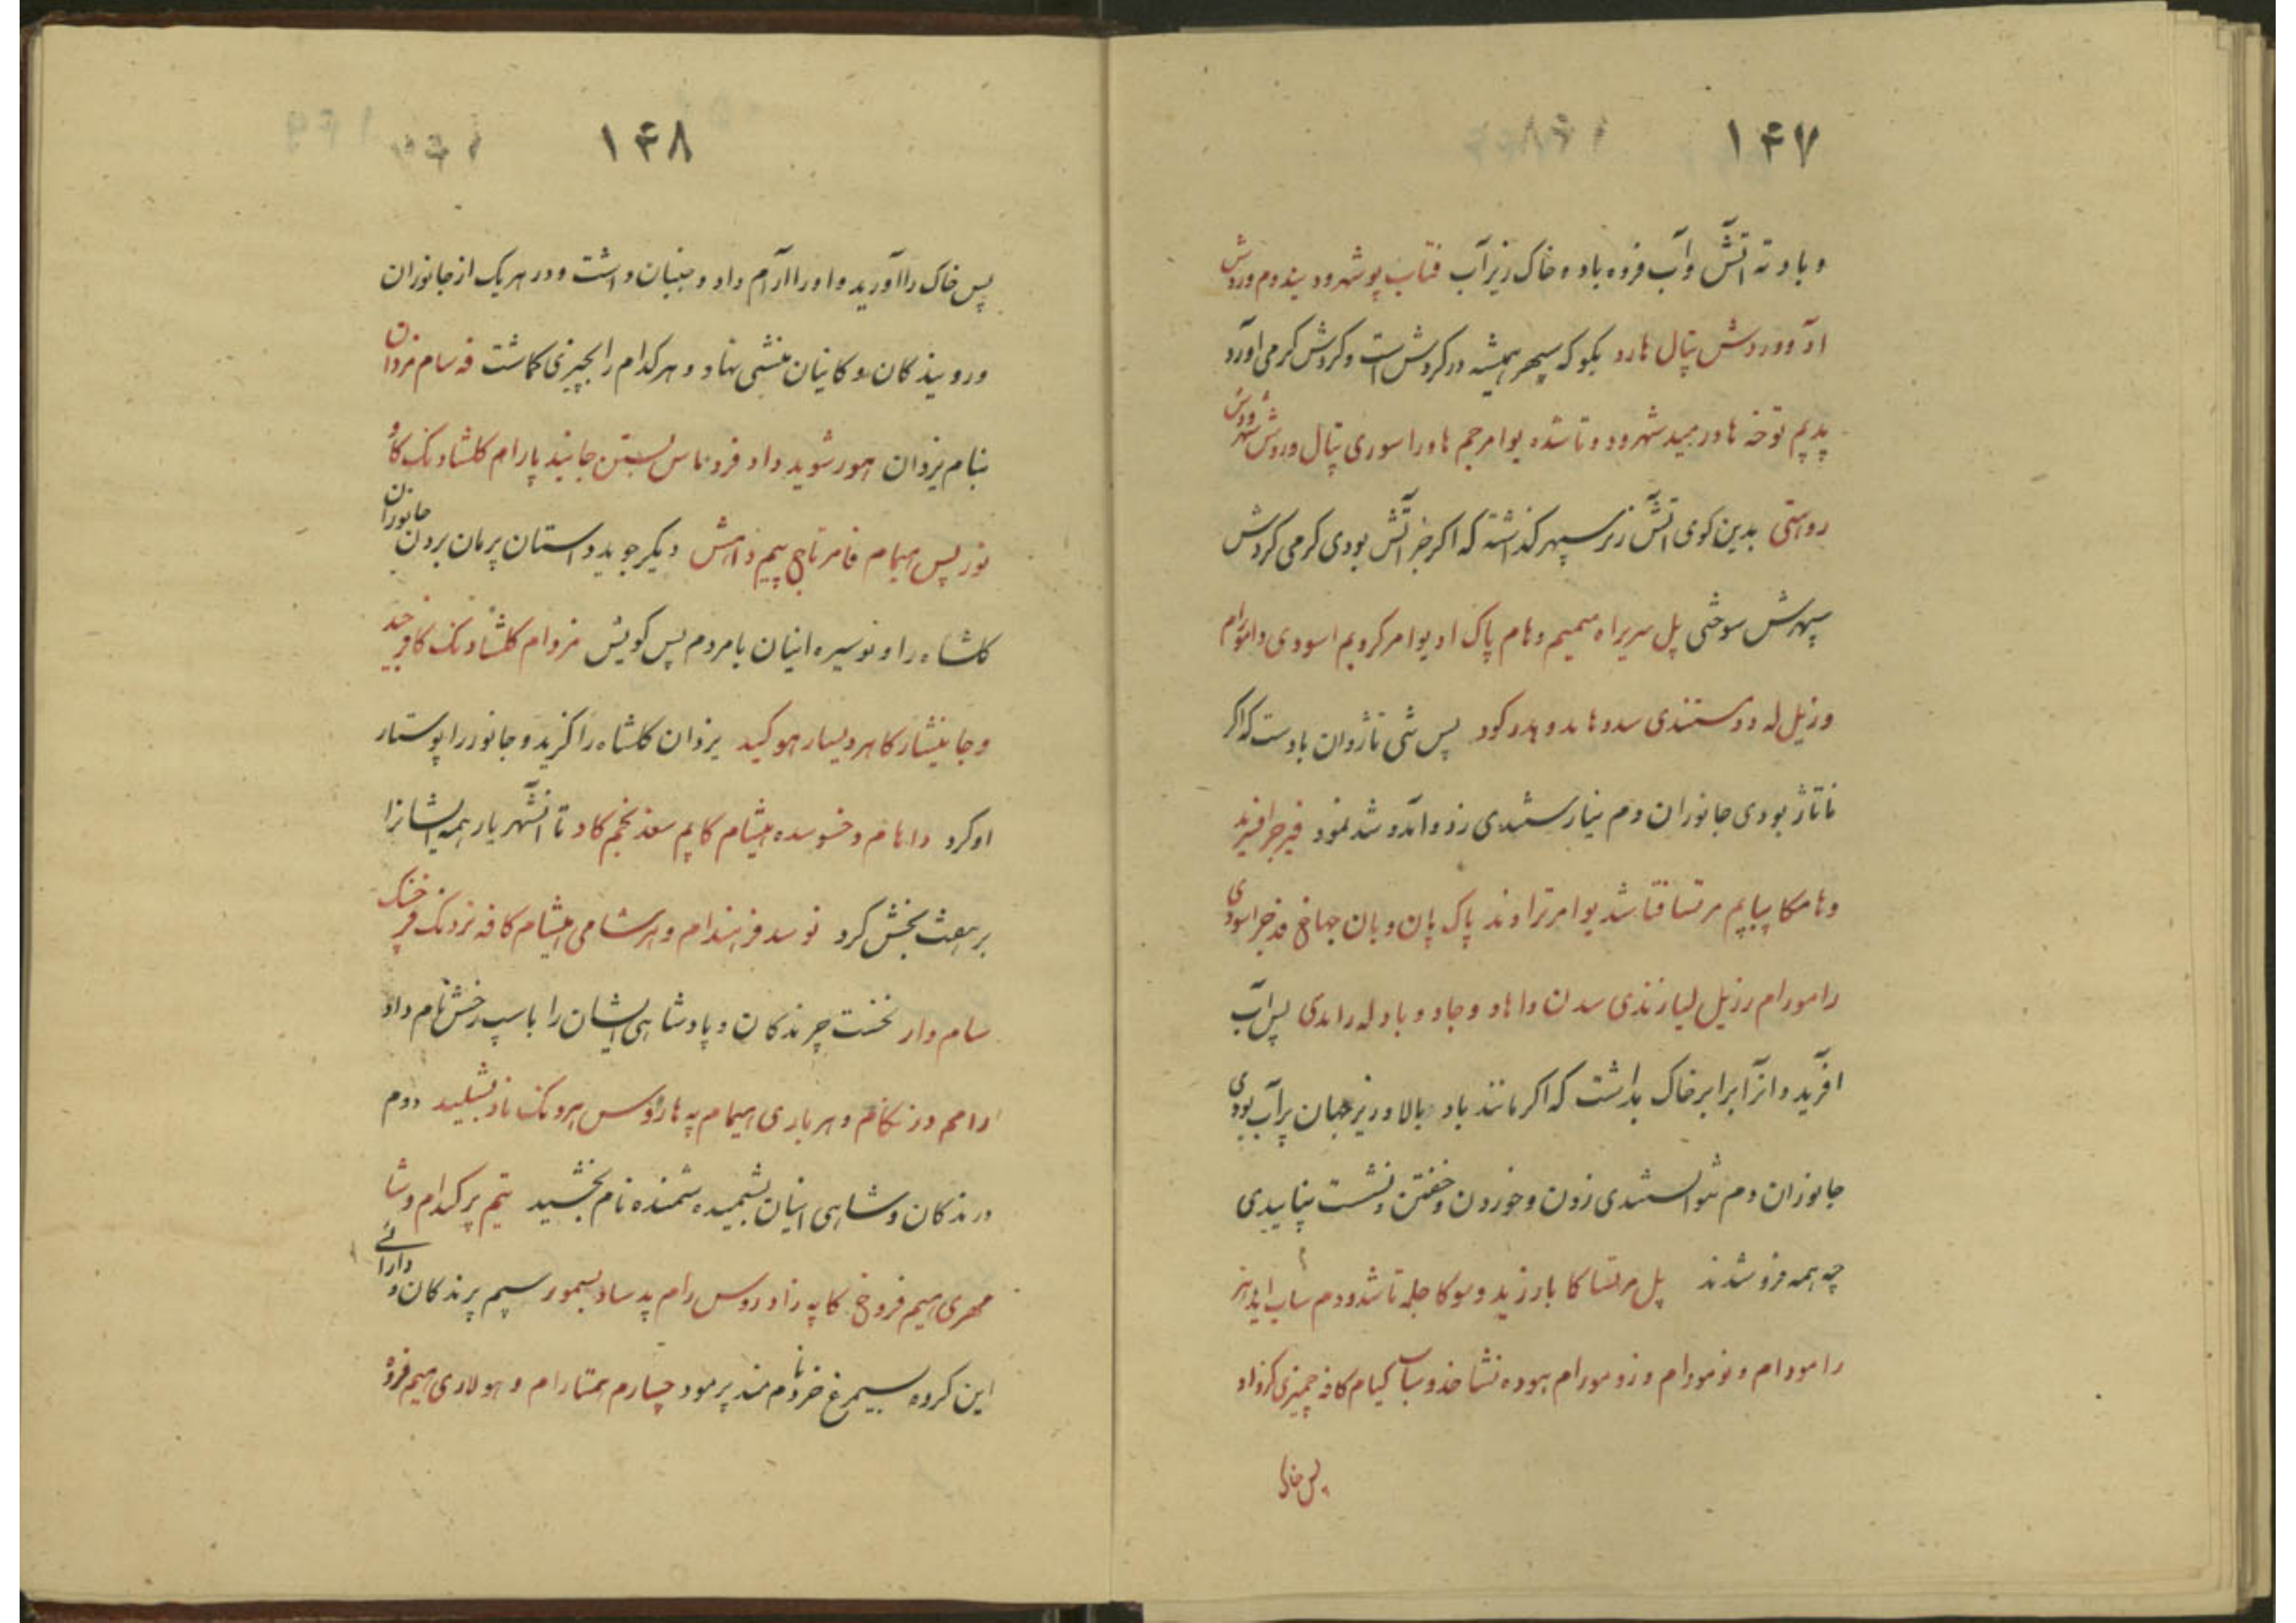 ۱۴۷
و باد ته آتش و آب فروه باد و خاک زیر آب فتاب پو شهرود یندوم وردش
او وورردش تپال هارد بگو که سپهر همیشه در گردش است و گردش گرمی آورد
پدیم توخه هاور مید شهرود و تا شده یوامرجم هاورا سوری تپال وردش شهرودس
روستی بدین کوی آتش زیر سپهر گذاشته که اگر جز آتش بودی گرمی گردش
سپهرش سوختی پل سریراه میمیم و هام پاک اد یوامر کرویم اسودی دامورام
وزیل له دوستندی سدو ها بدو بدر کود پس شی تاژوان بادست که اگر
ناتاژ بودی جانوران دم نیارستندی زد و آمد و شد نمود
و هامکا پیاپیم مرتسا فتا شد یوامر تراوند پاک پان و بان جهاخ فه خبر اسودی
رامورام رزیل لیارندی سدن داهاد و جاد و باد له راندی پس آب
آفرید و از آبرا بر خاک بداشت که اگر مانند باد بالا و زیر جهان پر آب بودی
جانوران دم نتوانستندی زدن و خوردن و خفتن و نشست نپاییدی
چه همه فرو شدند پل مرتسا کا بارزید و سوکا جله تا شدودم ساب
رامودام و نومورام وزومورام بهوده نشا خذوساب کیام کافه چمیزی کرزاد
پس خاک
۱۴۸
پس خاک را آورید و او را آرام داد و جنبان داشت و در هر یک از جانوران
و رویندگان و کانیان منشی نهاد و هر کدام را بچیزی گماشت فه سام مزدان
بنام یزدان هور شوید داد فرو ماس بستن جانید پارام کلشادنک کاو
نوز پس همام فامر تاج پیم دامش دیگر جوید داستان پرمان بردن جانوران
کلشاه را و نو سیره اینان با مردم پس گویش مزدام کلشادنک کافرجید
و جا ینشار کا هردیسار هوکید یزدان کلشاه را گزید و جانور را پوستار
او کرد داهام و خسوده هیشام کاپم سعذ بخم کاد تا آنشهریار همه ایشانرا
بر هفت بخش کرد نوسد فرهندام و هرشامی هیشام کافه نزدنک فرخنک
سام دار نخست چرندگان و پادشاهی ایشان را باسپ رخش نام داد
رامم درنکام و هرباری همام په هارؤس هرونک ناد بشلید دوم
درندگان و شاهی اینان بشمیده شمنده نام بخشید تیم پرکدام وشا
مهری هیم فروخ کاپه زاوروس رام پد ساد بسمور سیم پرندگان و دارائے
این گروه سیمرغ خردمند نام پرمود چهارم همتارام و هولاری هیم فروه